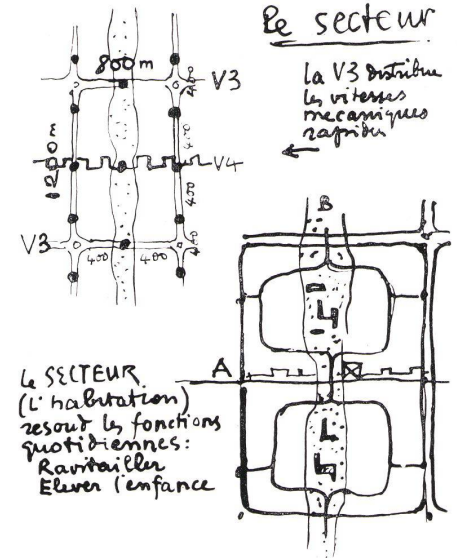 Le secteur
La V3 distribue
les vitesses
mecaniques
rapides
800 m
V3
400
1200 m
400
V4
400
V3
400
400
400
B
A
Le SECTEUR
(L'habitation)
resoud les fonctions
quotidiennes:
Ravitailler
Elever l'enfance